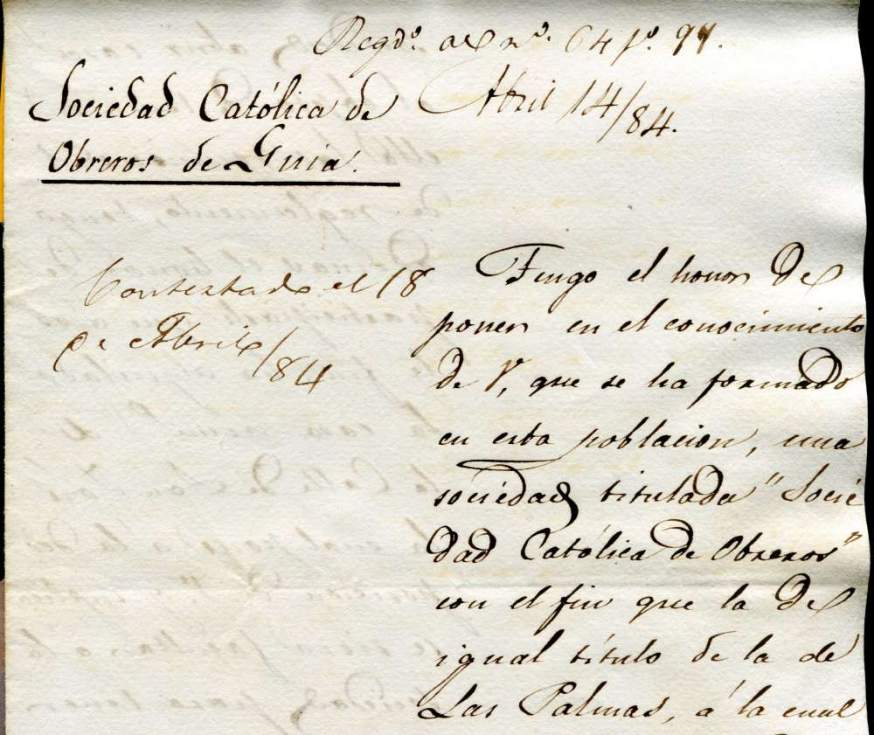 Regdo. al no. 64 fo. 97.
Sociedad Católica de
Obreros de Guia.
Abril 14/84.
Contestado el 18
de Abril/84
Tengo el honor de
poner en el conocimiento
de V, que se ha formado
en esta poblacion, una
sociedad titulada "Socie
dad Católica de Obreros"
con el fin que la de
igual título de la de
Las Palmas, á la cual